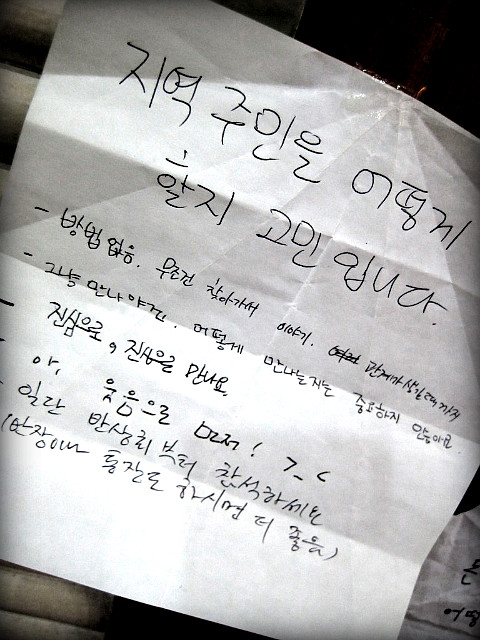 지역 주민을 어떻게
할지 고민입니다.
- 방법 없음. 무조건 찾아가서 이야기. 관계가 생길때까지
- 그냥 만나야죠. 어떻게 만나는지는 중요하지 않아요.
- 진심으로, 진심을 만나요.
- 아, 웃음으로 먼저! >_<
- 일단 반상회부터 참석하세요
(반장이나 통장도 하시면 더 좋음)